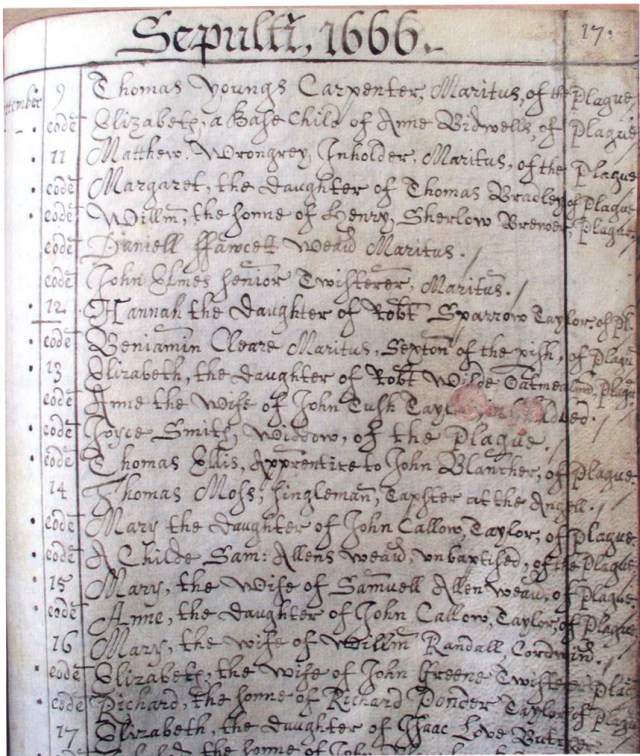 Sepulti, 1666.
17.
September 9 Thomas Youngs Carpenter, Maritus, of the Plague
eodē Elizabeth, a Base Child of Anne Bidwells, of Plague
11 Matthew Wrongrey, Inholder, Maritus, of the Plague
eodē Margaret, the daughter of Thomas Bradley of Plague
eodē Willm, the sonne of Henry Sherlow Brewer, Plague
eodē Daniell ffawcet Weavr Maritus.
eodē John Elmes senior Twisterer, Maritus.
12. Hannah the daughter of Robt Sparrow Taylor, of Pl
eodē Benjamin Cleare Maritus, Sexton of the pish, of Plague
13 Elizabeth, the daughter of Robt Wilde Plague
eodē Anne the Wife of John Tush Tayl
eodē Joyce Smith, Widdow, of the Plague.
eodē Thomas Ellis, Apprentice to John Blancher, of Plague
14 Thomas Moss, singleman, Tapster at the Angell.
eodē Mary the daughter of John Callow, Taylor, of Plague
eodē A Childe Sam: Allens weavr, unbaptised, of the Plague
15 Mary, the Wife of Samuell Allen weavr, of Plague
eodē Anne, the daughter of John Callow, Taylor, of Plague
16 Mary, the wife of Willm Randall, Cordwin.
eodē Elizabeth, the Wife of John Greene Twister Plac
eodē Richard, the sonne of Richard Poncer Taylor, of Plague
17 Elizabeth, the daughter of Isaac Love
the sonne of John